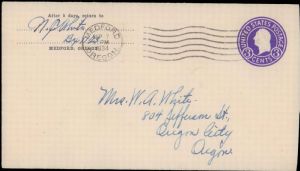 After 5 days, return to
MEDFORD, OREGON
MEDFORD
PM
1934
OREGON
UNITED STATES POSTAGE
3 CENTS 3
Mrs. W. A. White
804 Jefferson St,
Oregon City
Oregon